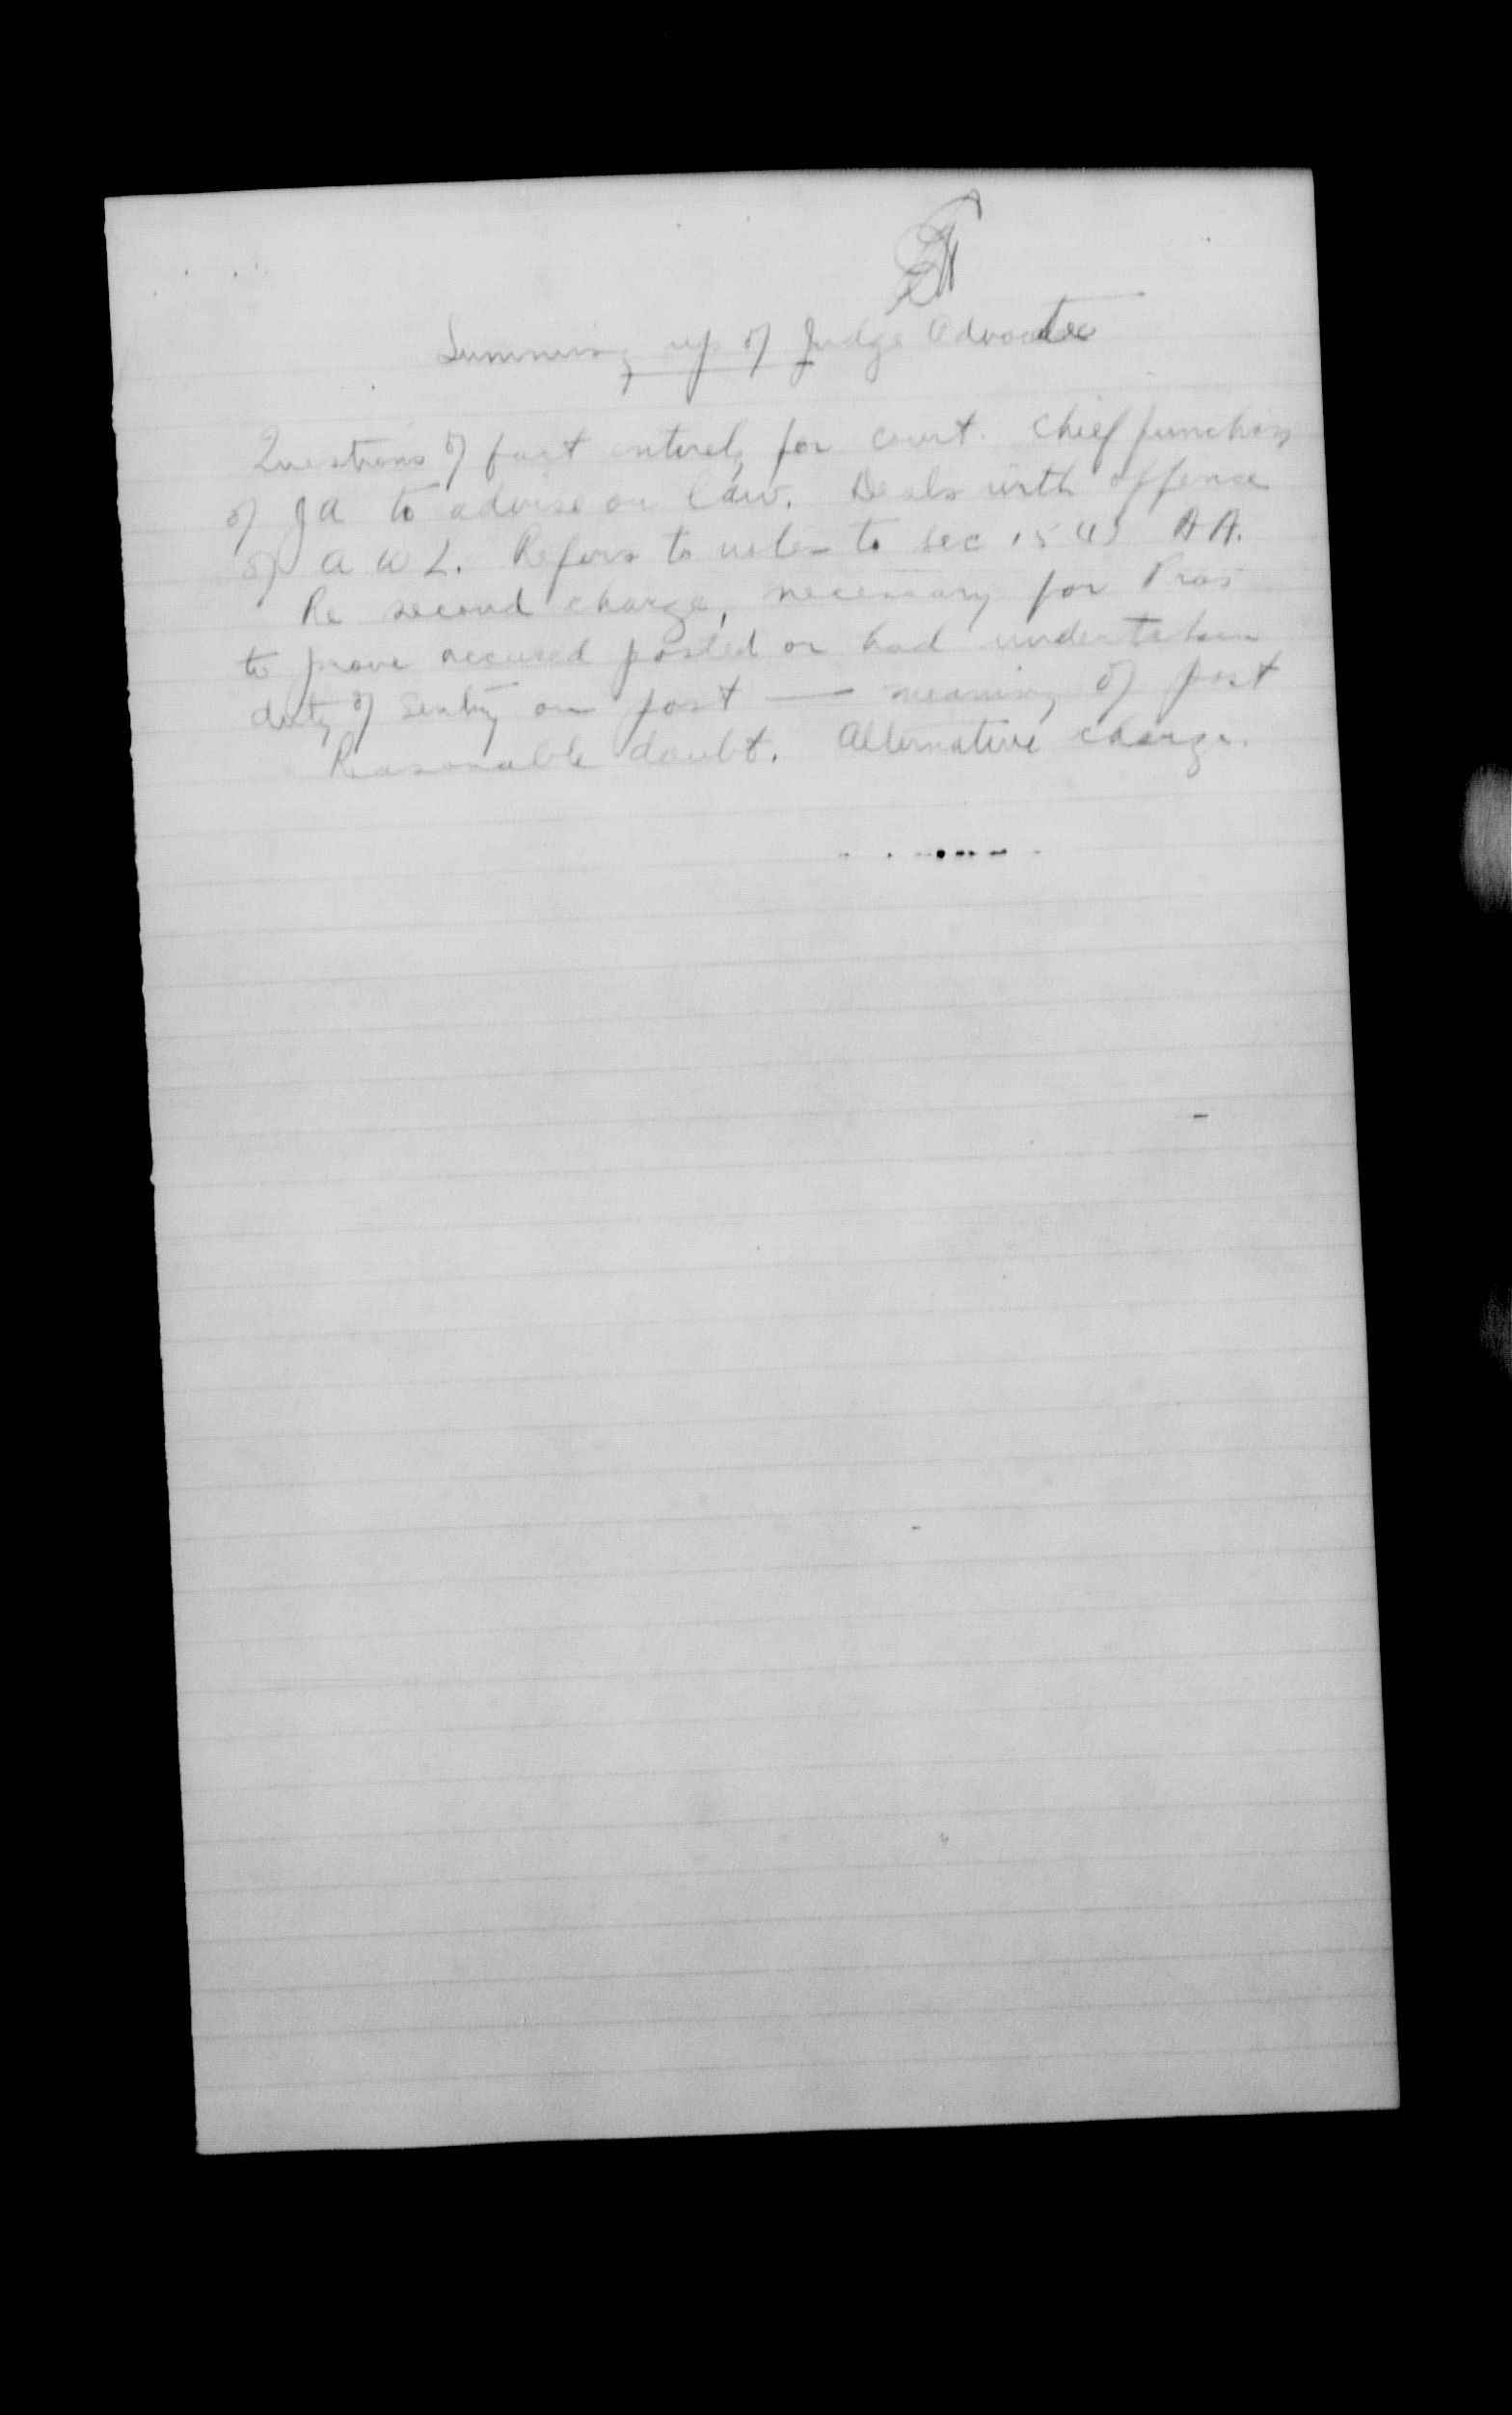 Summing up of Judge Advocate
Questions of fact entirely for court. Chief function
of JA to advise on law. Deals with offence
of A W L. Refers to notes to sec 15 (1) A A.
Re second charge, necessary for Pros
to prove accused posted or had undertaken
duty of sentry on post — meaning of post
Reasonable doubt. Alternative charge.